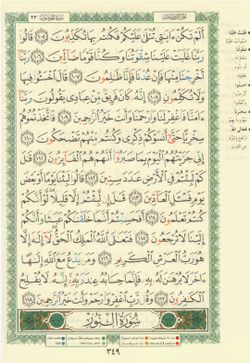 أَلَمْ تَكُنْ ءَايَٰتِي تُتْلَىٰ عَلَيْكُمْ فَكُنتُم بِهَا تُكَذِّبُونَ ﴿١٠٥﴾ قَالُوا۟
رَبَّنَا غَلَبَتْ عَلَيْنَا شِقْوَتُنَا وَكُنَّا قَوْمًا ضَآلِّينَ ﴿١٠٦﴾ رَبَّنَآ
أَخْرِجْنَا مِنْهَا فَإِنْ عُدْنَا فَإِنَّا ظَٰلِمُونَ ﴿١٠٧﴾ قَالَ ٱخْسَـُٔوا۟ فِيهَا
وَلَا تُكَلِّمُونِ ﴿١٠٨﴾ إِنَّهُۥ كَانَ فَرِيقٌ مِّنْ عِبَادِي يَقُولُونَ رَبَّنَآ
ءَامَنَّا فَٱغْفِرْ لَنَا وَٱرْحَمْنَا وَأَنتَ خَيْرُ ٱلرَّٰحِمِينَ ﴿١٠٩﴾ فَٱتَّخَذْتُمُوهُمْ
سِخْرِيًّا حَتَّىٰٓ أَنسَوْكُمْ ذِكْرِي وَكُنتُم مِّنْهُمْ تَضْحَكُونَ ﴿١١٠﴾
إِنِّي جَزَيْتُهُمُ ٱلْيَوْمَ بِمَا صَبَرُوٓا۟ أَنَّهُمْ هُمُ ٱلْفَآئِزُونَ ﴿١١١﴾ قَٰلَ
كَمْ لَبِثْتُمْ فِي ٱلْأَرْضِ عَدَدَ سِنِينَ ﴿١١٢﴾ قَالُوا۟ لَبِثْنَا يَوْمًا أَوْ بَعْضَ
يَوْمٍ فَسْـَٔلِ ٱلْعَآدِّينَ ﴿١١٣﴾ قَٰلَ إِن لَّبِثْتُمْ إِلَّا قَلِيلًا لَّوْ أَنَّكُمْ
كُنتُمْ تَعْلَمُونَ ﴿١١٤﴾ أَفَحَسِبْتُمْ أَنَّمَا خَلَقْنَٰكُمْ عَبَثًا وَأَنَّكُمْ
إِلَيْنَا لَا تُرْجَعُونَ ﴿١١٥﴾ فَتَعَٰلَى ٱللَّهُ ٱلْمَلِكُ ٱلْحَقُّ لَآ إِلَٰهَ إِلَّا
هُوَ رَبُّ ٱلْعَرْشِ ٱلْكَرِيمِ ﴿١١٦﴾ وَمَن يَدْعُ مَعَ ٱللَّهِ إِلَٰهًا
ءَاخَرَ لَا بُرْهَٰنَ لَهُۥ بِهِۦ فَإِنَّمَا حِسَابُهُۥ عِندَ رَبِّهِۦٓ إِنَّهُۥ لَا يُفْلِحُ
ٱلْكَٰفِرُونَ ﴿١١٧﴾ وَقُل رَّبِّ ٱغْفِرْ وَٱرْحَمْ وَأَنتَ خَيْرُ ٱلرَّٰحِمِينَ ﴿١١٨﴾
سُورَةُ ٱلنُّورِ
٣٤٩